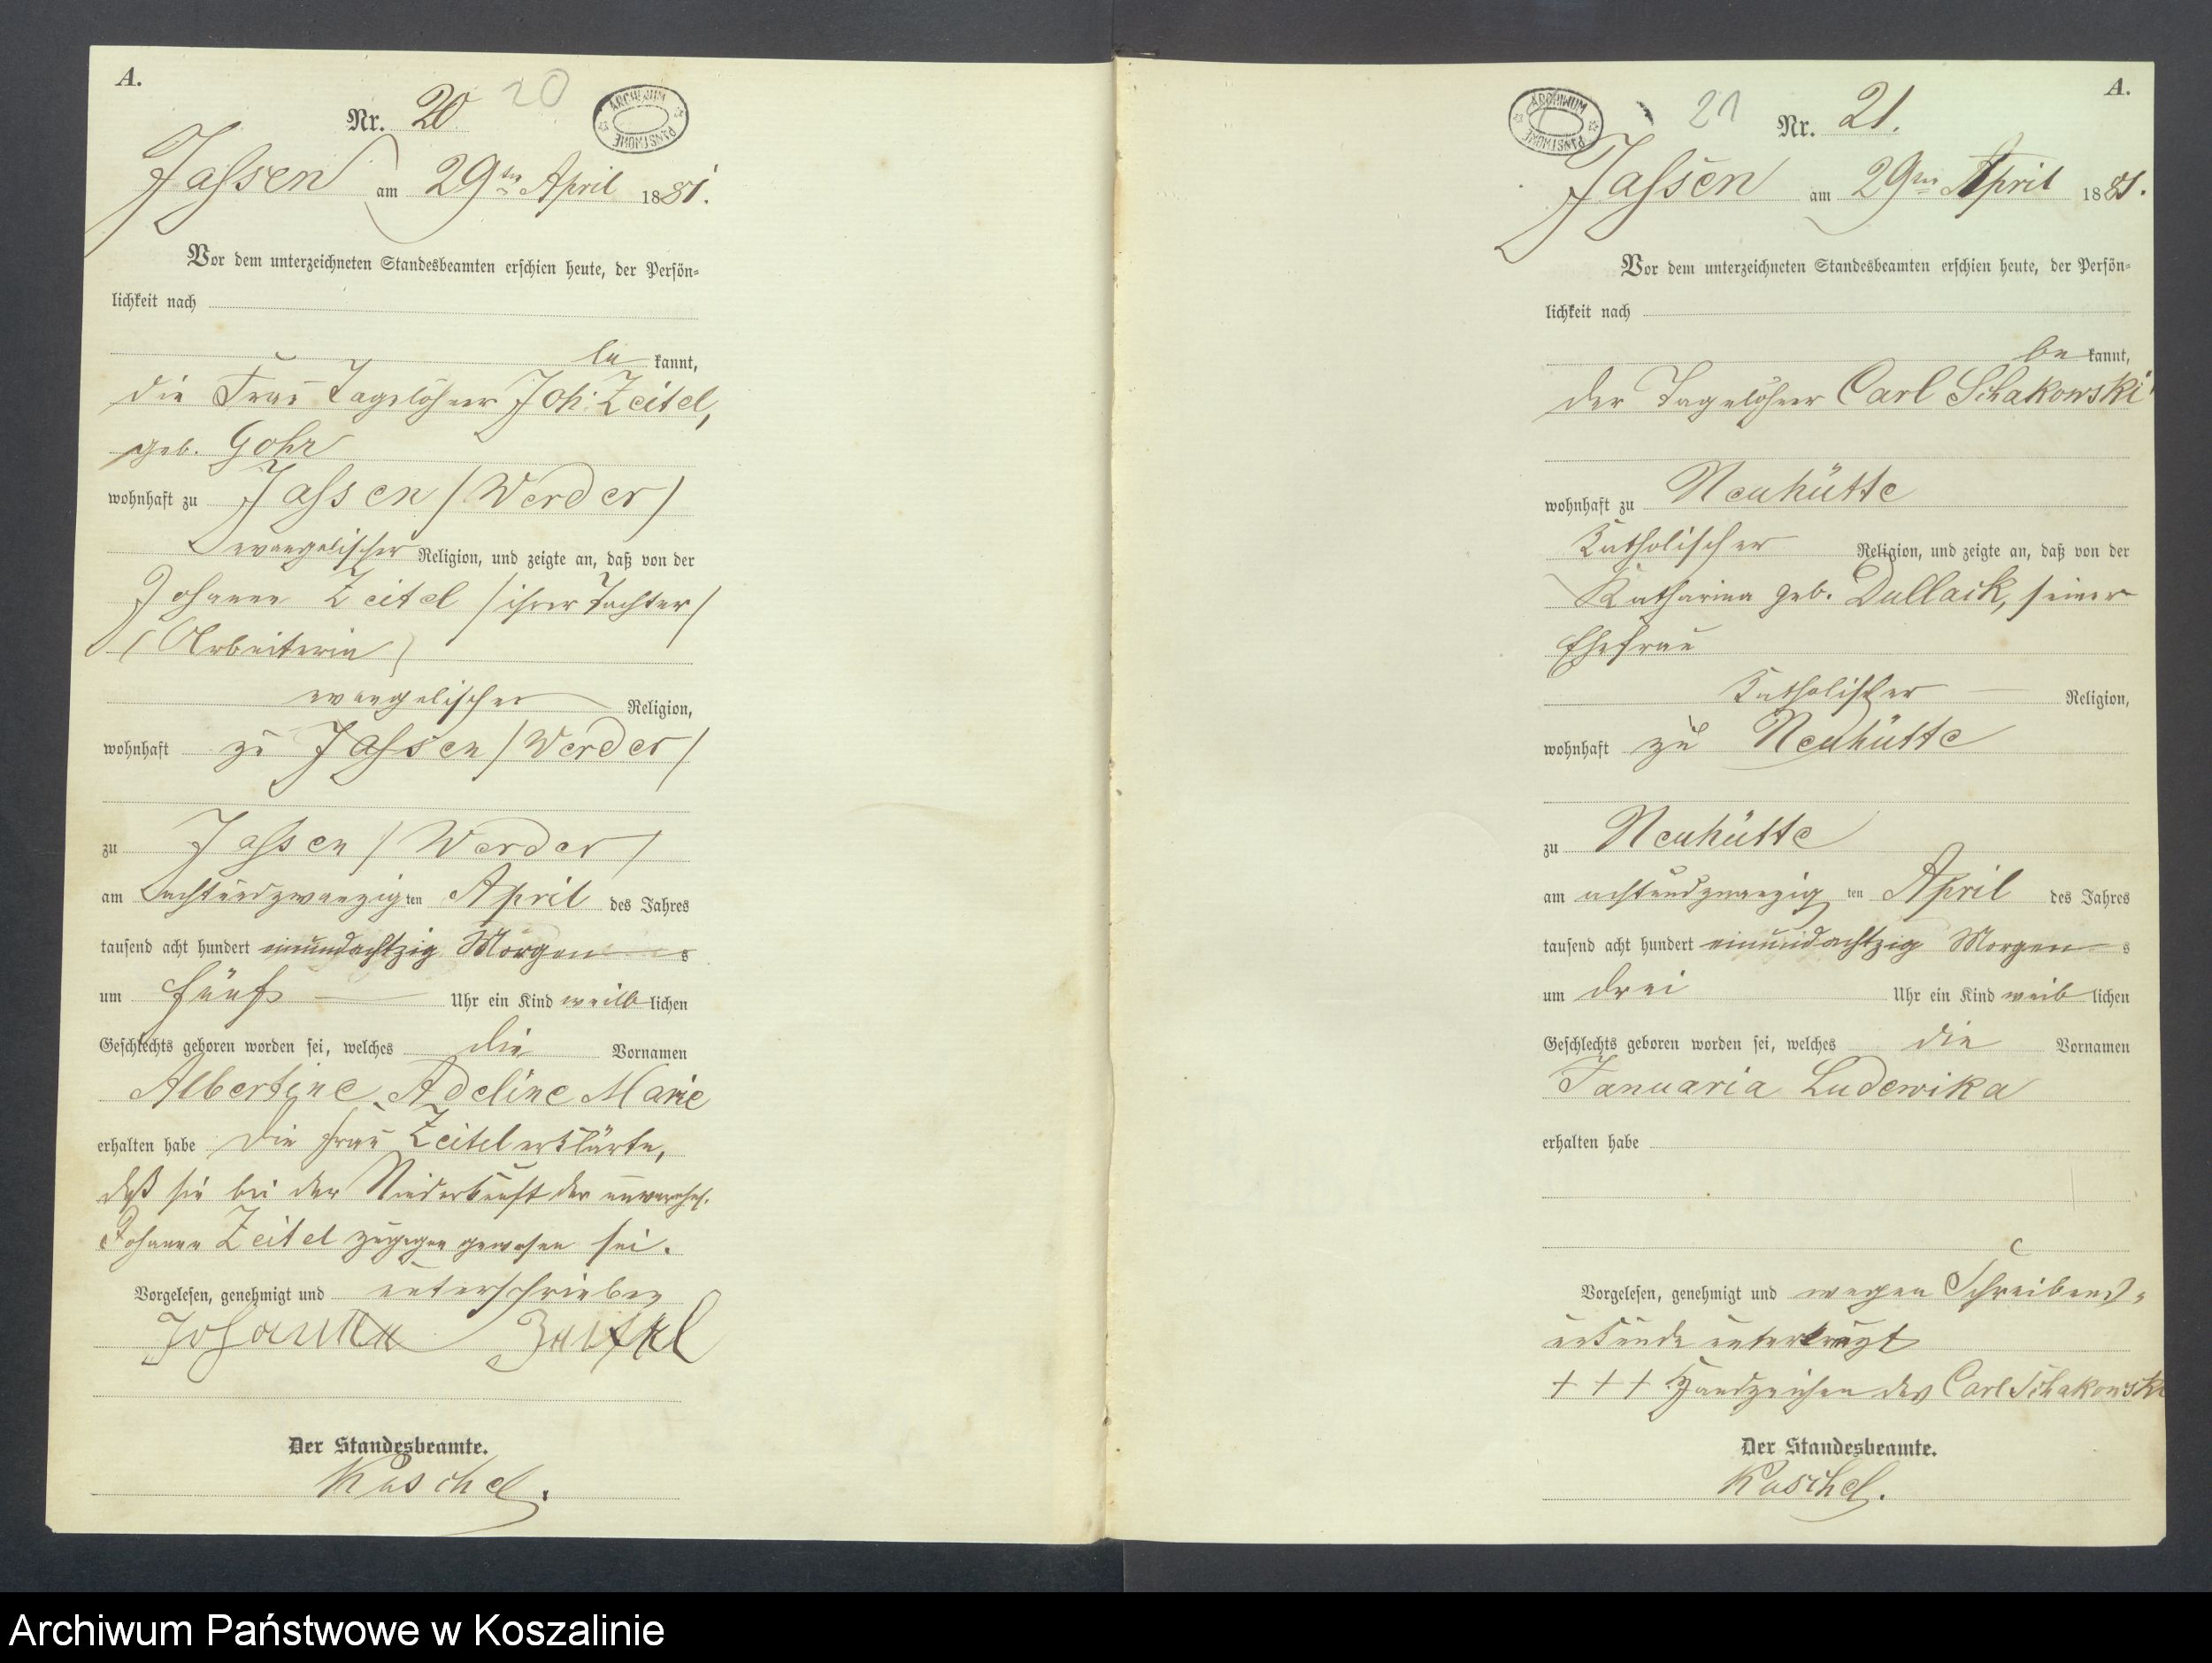 A.
Nr. 20
20
ARCHIWUM PAŃSTWOWE
Jassen am 29ten April 1881.
Vor dem unterzeichneten Standesbeamten erschien heute, der Persön-
lichkeit nach
be kannt,
die Frau Tagelöhner Joh: Zeitel,
geb. Gohr
wohnhaft zu Jassen / Werder /
evangelischer Religion, und zeigte an, daß von der
Johanna Zeitel / ihrer Tochter /
( Arbeiterin )
evangelischer Religion,
wohnhaft zu Jassen / Werder /
zu Jassen / Werder /
am achtundzwanzig ten April des Jahres
tausend acht hundert einundachtzig Morgen s
um fünf Uhr ein Kind weib lichen
Geschlechts geboren worden sei, welches die Vornamen
Albertine Adeline Marie
erhalten habe Die Frau Zeitel erklärte,
daß sie bei der Niederkunft der unverehel.
Johanna Zeitel zugegen gewesen sei.
Vorgelesen, genehmigt und unterschrieben
Johanna Zeitel
Der Standesbeamte.
Kuschel.
A.
ARCHIWUM PAŃSTWOWE
21
Nr. 21.
Jassen am 29ten April 1881.
Vor dem unterzeichneten Standesbeamten erschien heute, der Persön-
lichkeit nach
be kannt,
der Tagelöhner Carl Schakowski
wohnhaft zu Neuhütte
Katholischer Religion, und zeigte an, daß von der
Katharina geb. Dullack, seiner
Ehefrau
Katholischer Religion,
wohnhaft zu Neuhütte
zu Neuhütte
am achtundzwanzig ten April des Jahres
tausend acht hundert einundachtzig Morgen s
um drei Uhr ein Kind weib lichen
Geschlechts geboren worden sei, welches die Vornamen
Januaria Ludewika
erhalten habe
Vorgelesen, genehmigt und wegen Schreibens-
unkunde unterkreuzt
+ + + Handzeichen des Carl Schakowski
Der Standesbeamte.
Kuschel.
Archiwum Państwowe w Koszalinie